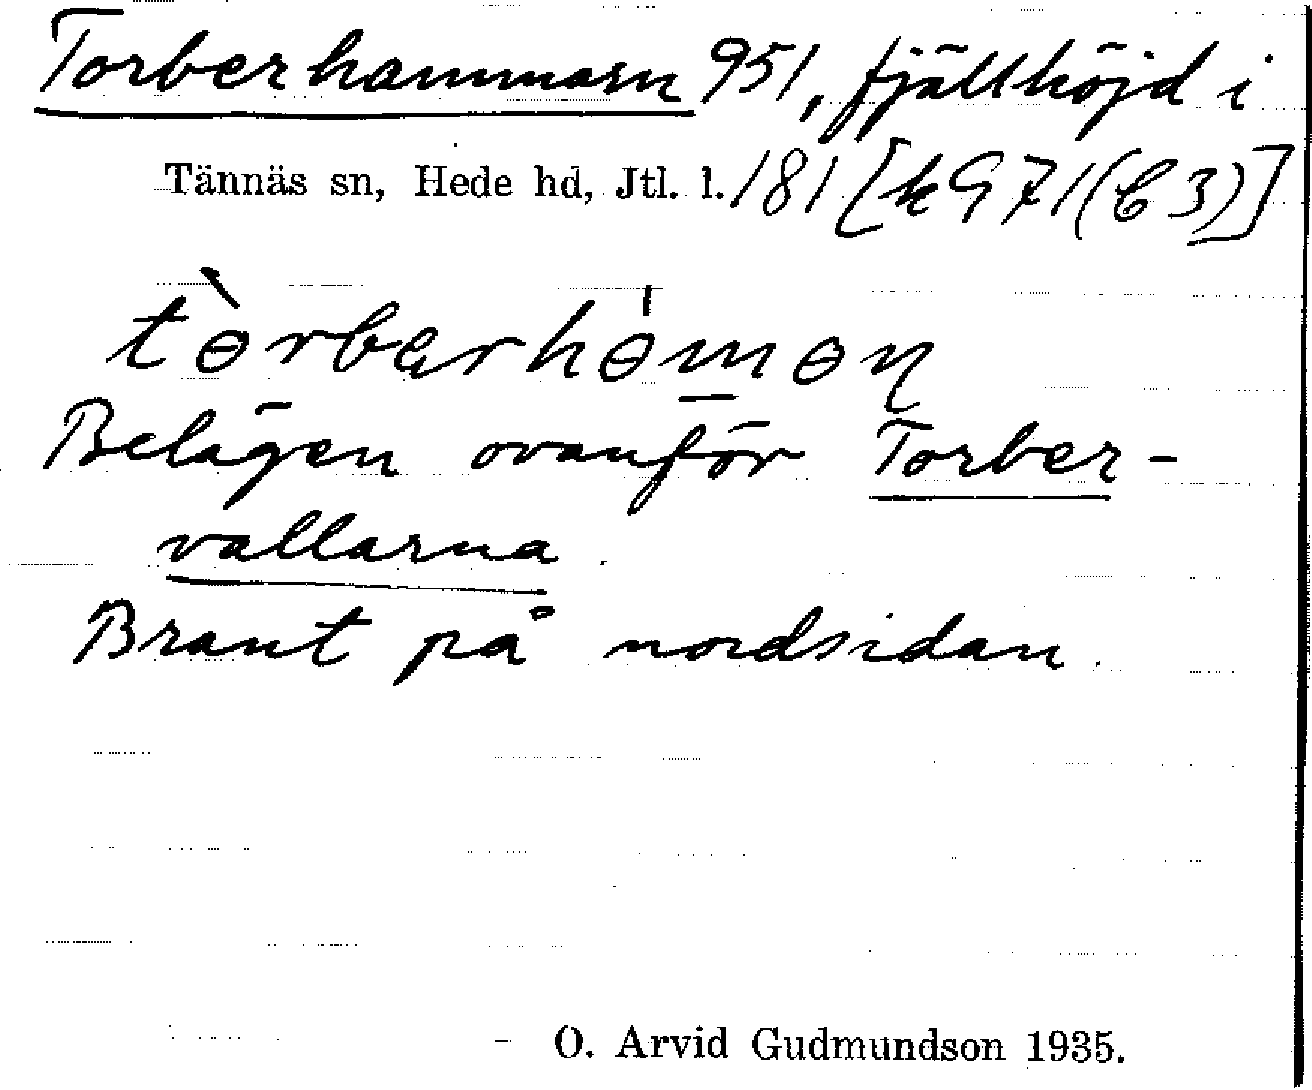 Torberhammarn 951, fjällhöjd i
Tännäs sn, Hede hd, Jtl. l. 181 [k 971 (C 3)]
tɵ̀rbərhɵ́mɵn
Belägen ovanför Torber-
vallarna.
Brant på nordsidan.
O. Arvid Gudmundson 1935.